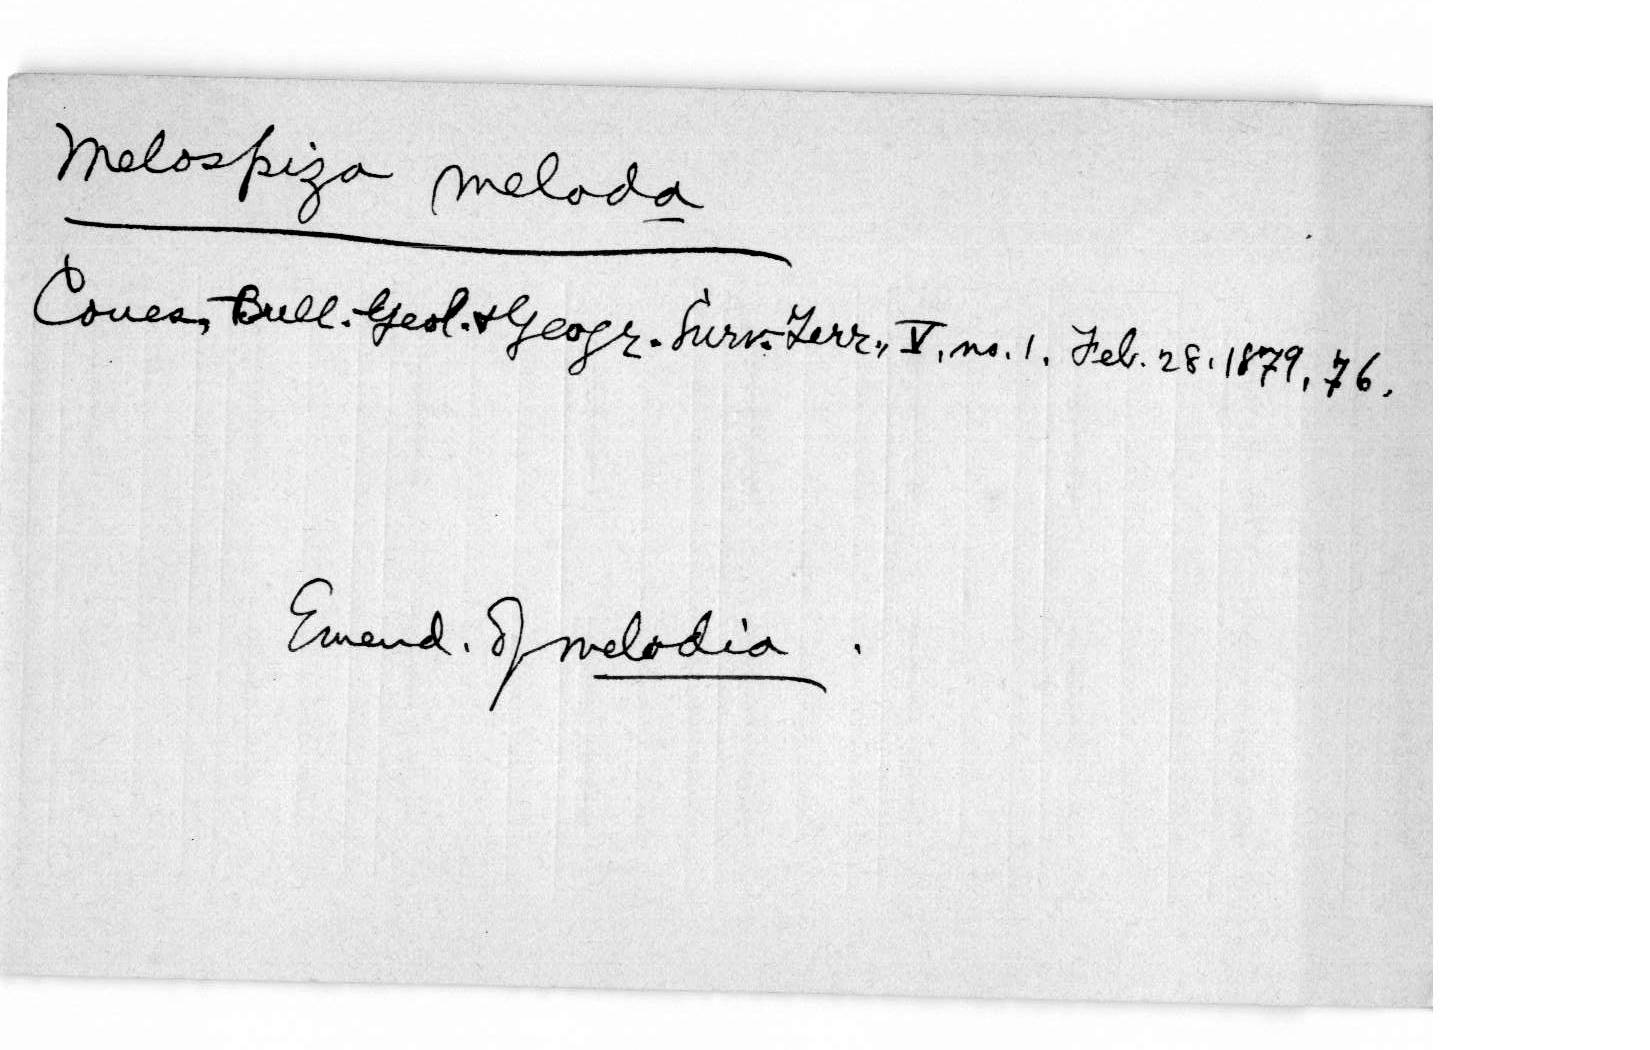 Melospiza meloda
Coues, Bull. Geol. & Geogr. Surv. Terr., V, no. 1. Feb. 28. 1879, 76.
Emend. of melodia.